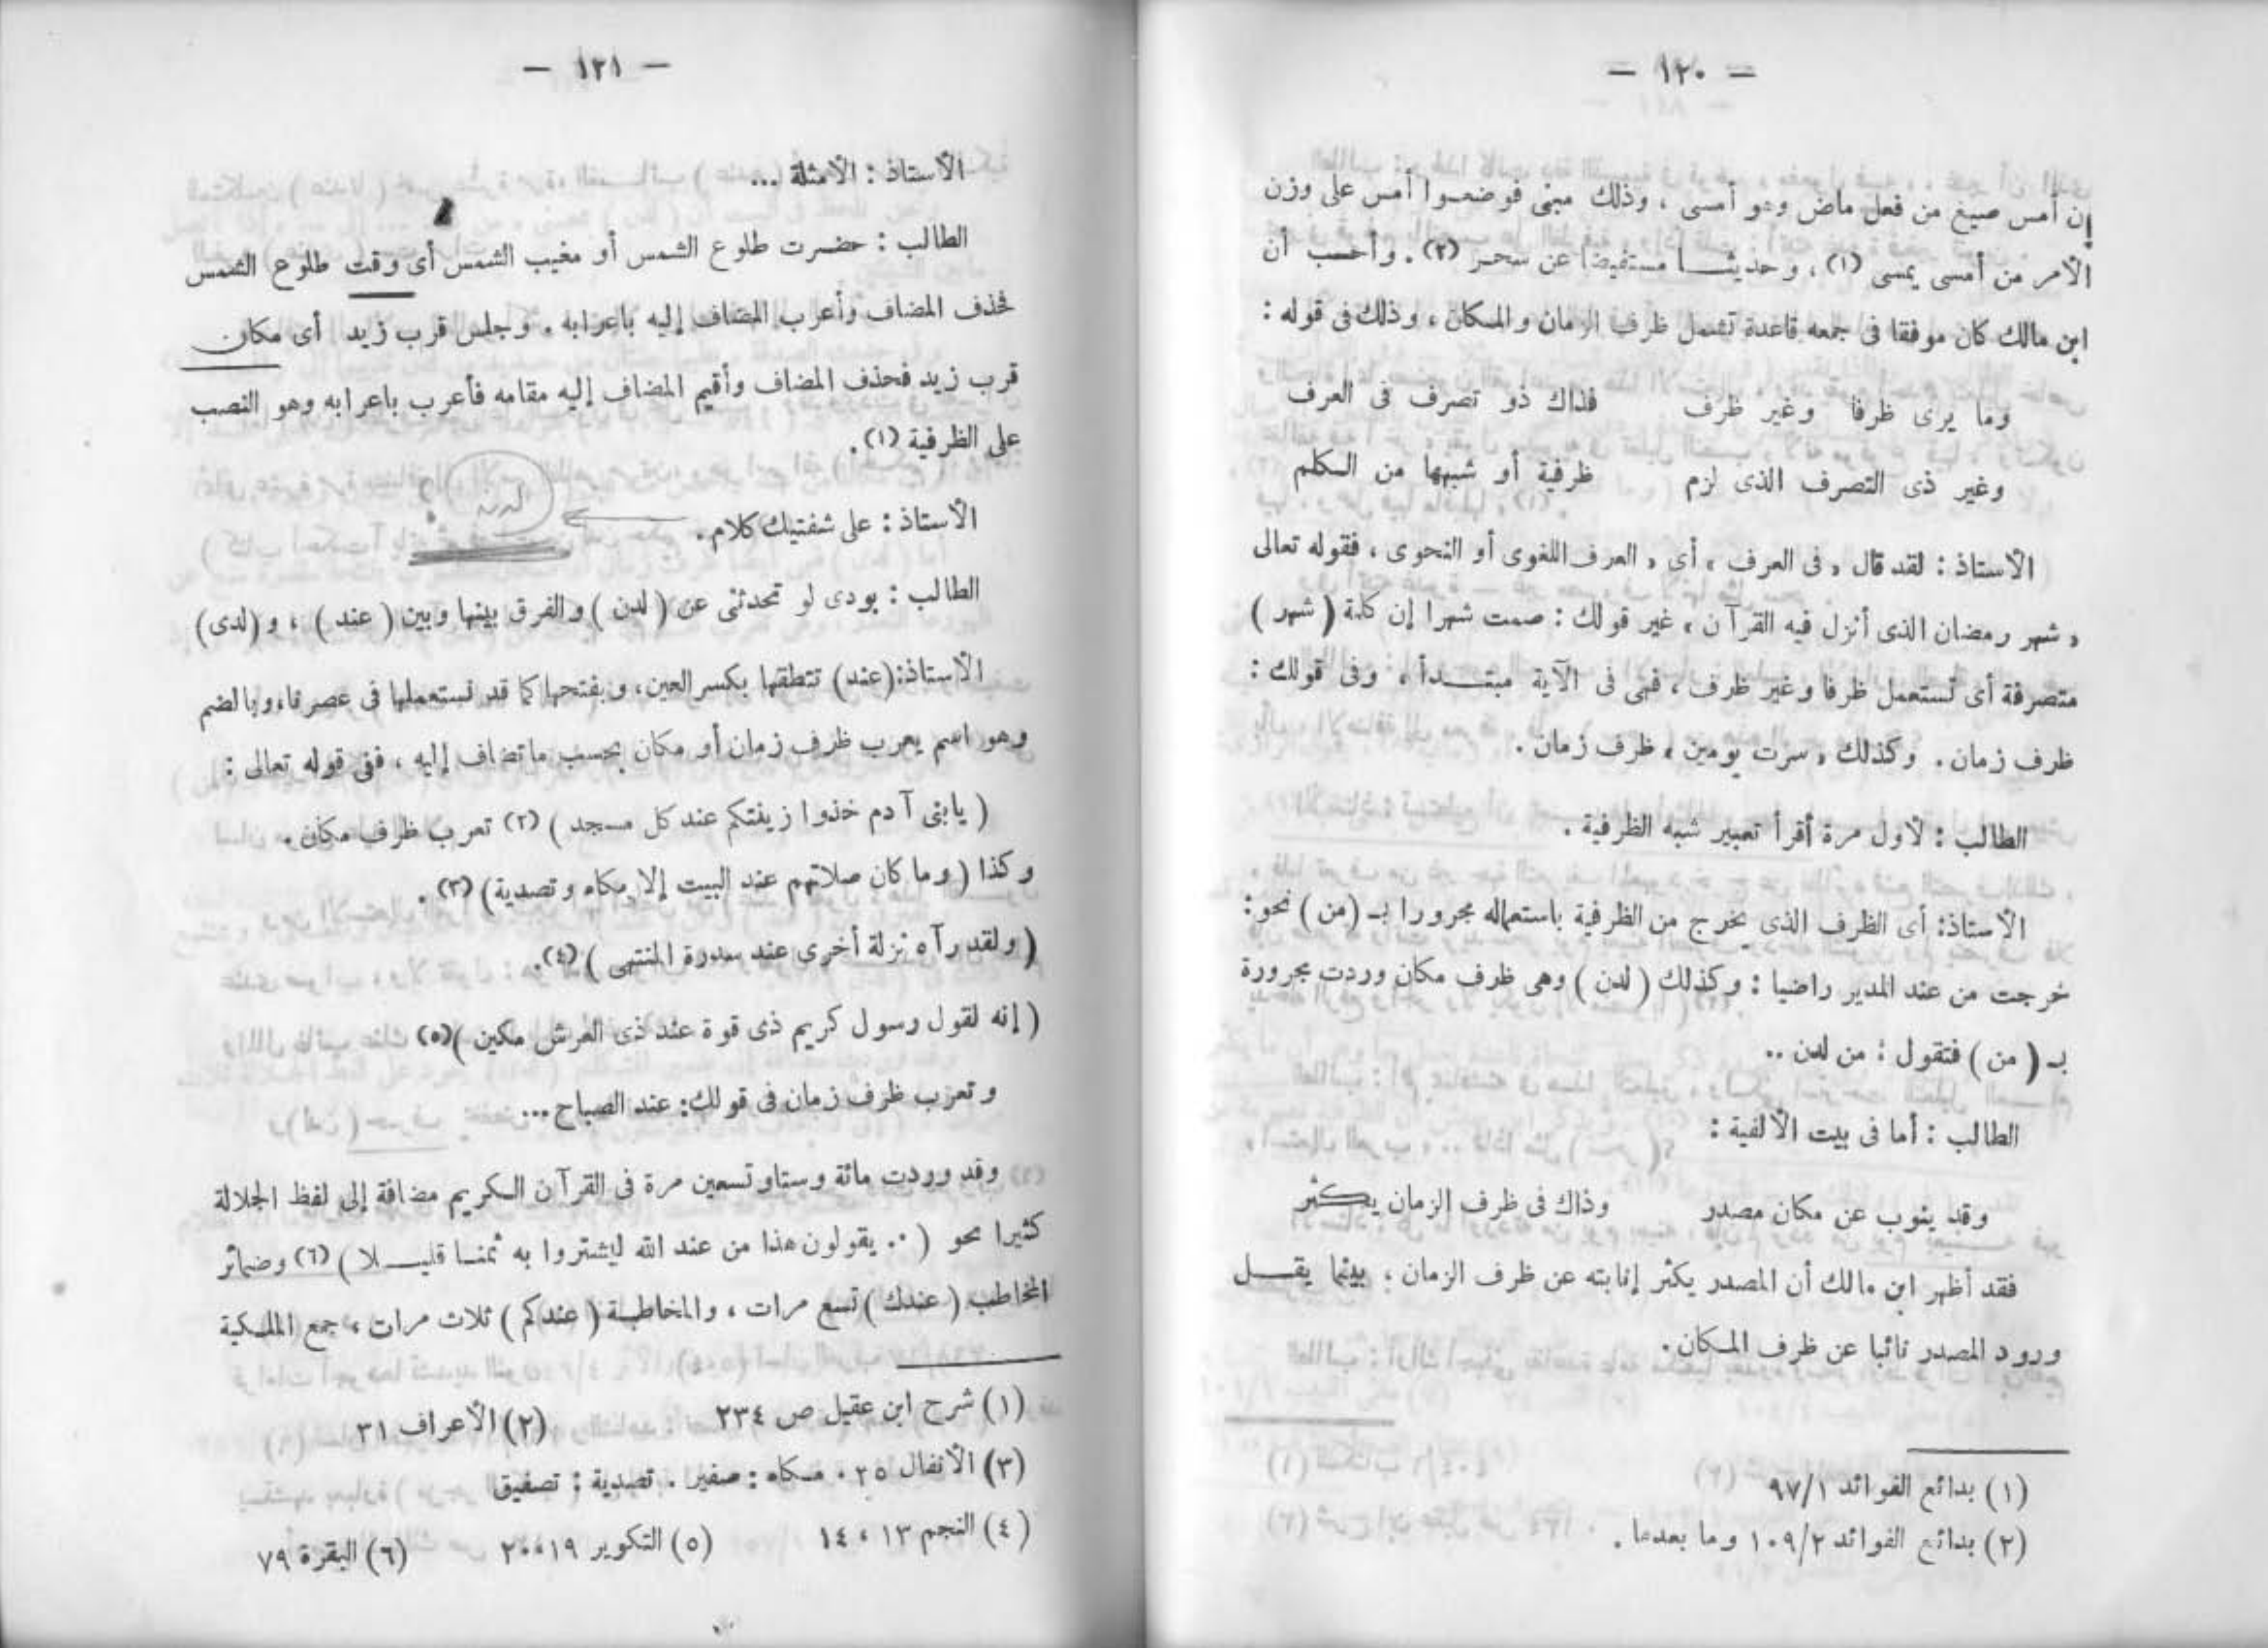 — ١٢٠ —
إن أمس صيغ من فعل ماض وهو أمسى ، وذلك مبنى فوضعوا أمس على وزن
الأمر من أمسى يمسى (١) ، وحديثا مستفيضا عن سحر (٢) . وأحسب أن
ابن مالك كان موفقا فى جمعه قاعدة تشمل ظرف الزمان والمكان ، وذلك فى قوله :
وما يرى ظرفا وغير ظرف فذاك ذو تصرف فى العرف
وغير ذى التصرف الذى لزم ظرفية أو شبهها من الكلم
الأستاذ : لقد قال « فى العرف » أى « العرف اللغوى أو النحوى ، فقوله تعالى
« شهر رمضان الذى أنزل فيه القرآن » غير قولك : صمت شهرا إن كلمة ( شهر )
متصرفة أى تستعمل ظرفا وغير ظرف ، فهى فى الآية مبتدأ ، وفى قولك :
ظرف زمان . وكذلك « سرت يومين » ظرف زمان .
الطالب : لأول مرة أقرأ تعبير شبه الظرفية .
الأستاذ : أى الظرف الذى يخرج من الظرفية باستعماله مجرورا بـ (من) نحو :
خرجت من عند المدير راضيا : وكذلك ( لدن ) وهى ظرف مكان وردت مجرورة
بـ ( من ) فتقول : من لدن ..
الطالب : أما فى بيت الألفية :
وقد ينوب عن مكان مصدر وذاك فى ظرف الزمان يكثر
فقد أظهر ابن مالك أن المصدر يكثر إنابته عن ظرف الزمان ؛ بينما يقل
ورود المصدر نائبا عن ظرف المكان .
(١) بدائع الفوائد ٩٧/١
(٢) بدائع الفوائد ١٠٩/٢ وما بعدها .
— ١٢١ —
الأستاذ : الأمثلة ...
الطالب : حضرت طلوع الشمس أو مغيب الشمس أى وقت طلوع الشمس
فحذف المضاف وأعرب المضاف إليه باعرابه . وجلس قرب زيد أى مكان
قرب زيد فحذف المضاف وأقيم المضاف إليه مقامه فأعرب باعرابه وهو النصب
على الظرفية (١) .
الأستاذ : على شفتيك كلام . لدن ؟
الطالب : بودى لو تحدثنى عن ( لدن ) والفرق بينها وبين ( عند ) ، و (لدى)
الأستاذ : (عند) تنطقها بكسر العين، وبفتحها كما قد نستعملها فى عصرنا، وبالضم
وهو اسم يعرب ظرف زمان أو مكان بحسب ما تضاف إليه ، ففى قوله تعالى :
( يا بنى آدم خذوا زينتكم عند كل مسجد ) (٢) تعرب ظرف مكان .
وكذا ( وما كان صلاتهم عند البيت إلا مكاء وتصدية ) (٣) .
( ولقد رآه نزلة أخرى عند سدرة المنتهى ) (٤).
( إنه لقول رسول كريم ذى قوة عند ذى العرش مكين )(٥)
وتعرب ظرف زمان فى قولك: عند الصباح ...
وقد وردت مائة وستا وتسعين مرة فى القرآن الكريم مضافة إلى لفظ الجلالة
كثيرا نحو ( .. يقولون هذا من عند الله ليشتروا به ثمنا قليلا ) (٦) وضمائر
المخاطب ( عندك ) تسع مرات ، والمخاطبة ( عندكم ) ثلاث مرات ، جمع الملكية
(١) شرح ابن عقيل ص ٢٣٤ (٢) الأعراف ٣١
(٣) الأنفال ٣٥ . مكاء : صفير . تصدية : تصفيق
(٤) النجم ١٣ ، ١٤ (٥) التكوير ١٩، ٢٠ (٦) البقرة ٧٩